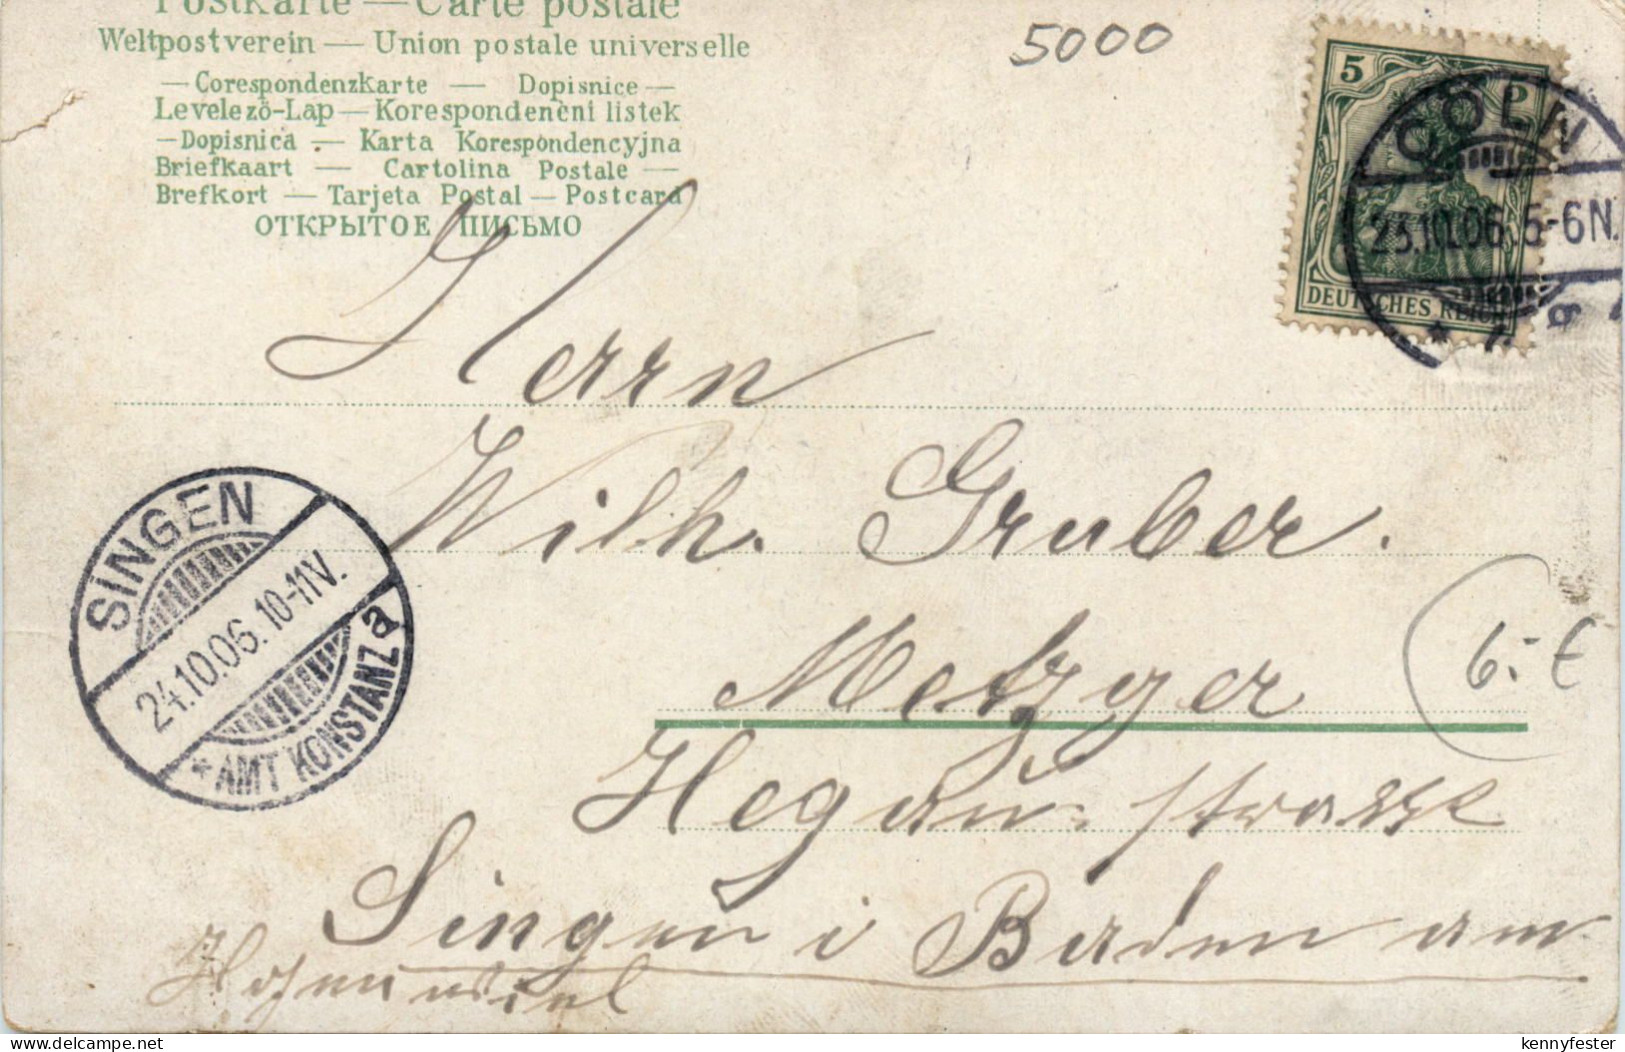 Postkarte — Carte postale
Weltpostverein — Union postale universelle
— Corespondenzkarte — Dopisnice —
Levelező-Lap — Korespondencni listek
— Dopisnica — Karta Korespondencyjna
Briefkaart — Cartolina Postale —
Brefkort — Tarjeta Postal — Postcard
ОТКРЫТОЕ ПИСЬМО
5000
5 P
DEUTSCHES REICH
CÖLN
23.10.06. 5-6N.
Herrn
Wilh. Gruber.
Metzger
6.- €
Hegau-strasse
Singen i Baden am
SINGEN
24.10.06. 10-11V.
* AMT KONSTANZ a
kennyfester